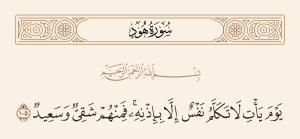 سُورَةُ هُودٍ
بِسْمِ اللَّهِ الرَّحْمَٰنِ الرَّحِيمِ
يَوْمَ يَأْتِ لَا تَكَلَّمُ نَفْسٌ إِلَّا بِإِذْنِهِۦ ۚ فَمِنْهُمْ شَقِىٌّ وَسَعِيدٌ ١٠٥